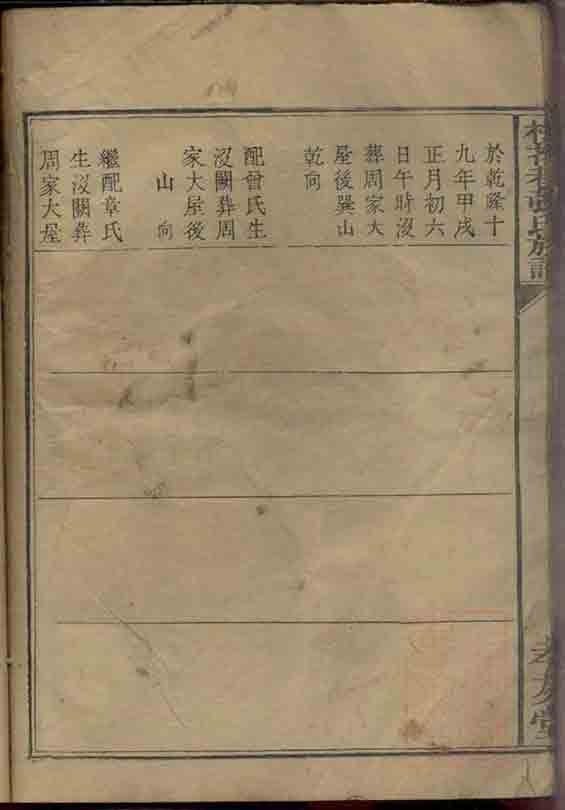 氏族譜
孝友堂
於乾隆十
九年甲戌
正月初六
日午時沒
葬周家大
屋後巽山
乾向
配曾氏生
沒闕葬周
家大屋後
山　向
繼配章氏
生沒闕葬
周家大屋